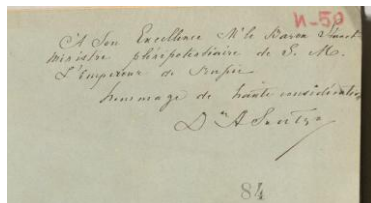 И-50
A Son Excellence Mr le Baron
Ministre plénipotentiaire de S. M.
L'Empereur de Russie
hommage de haute considération
Dr A
84